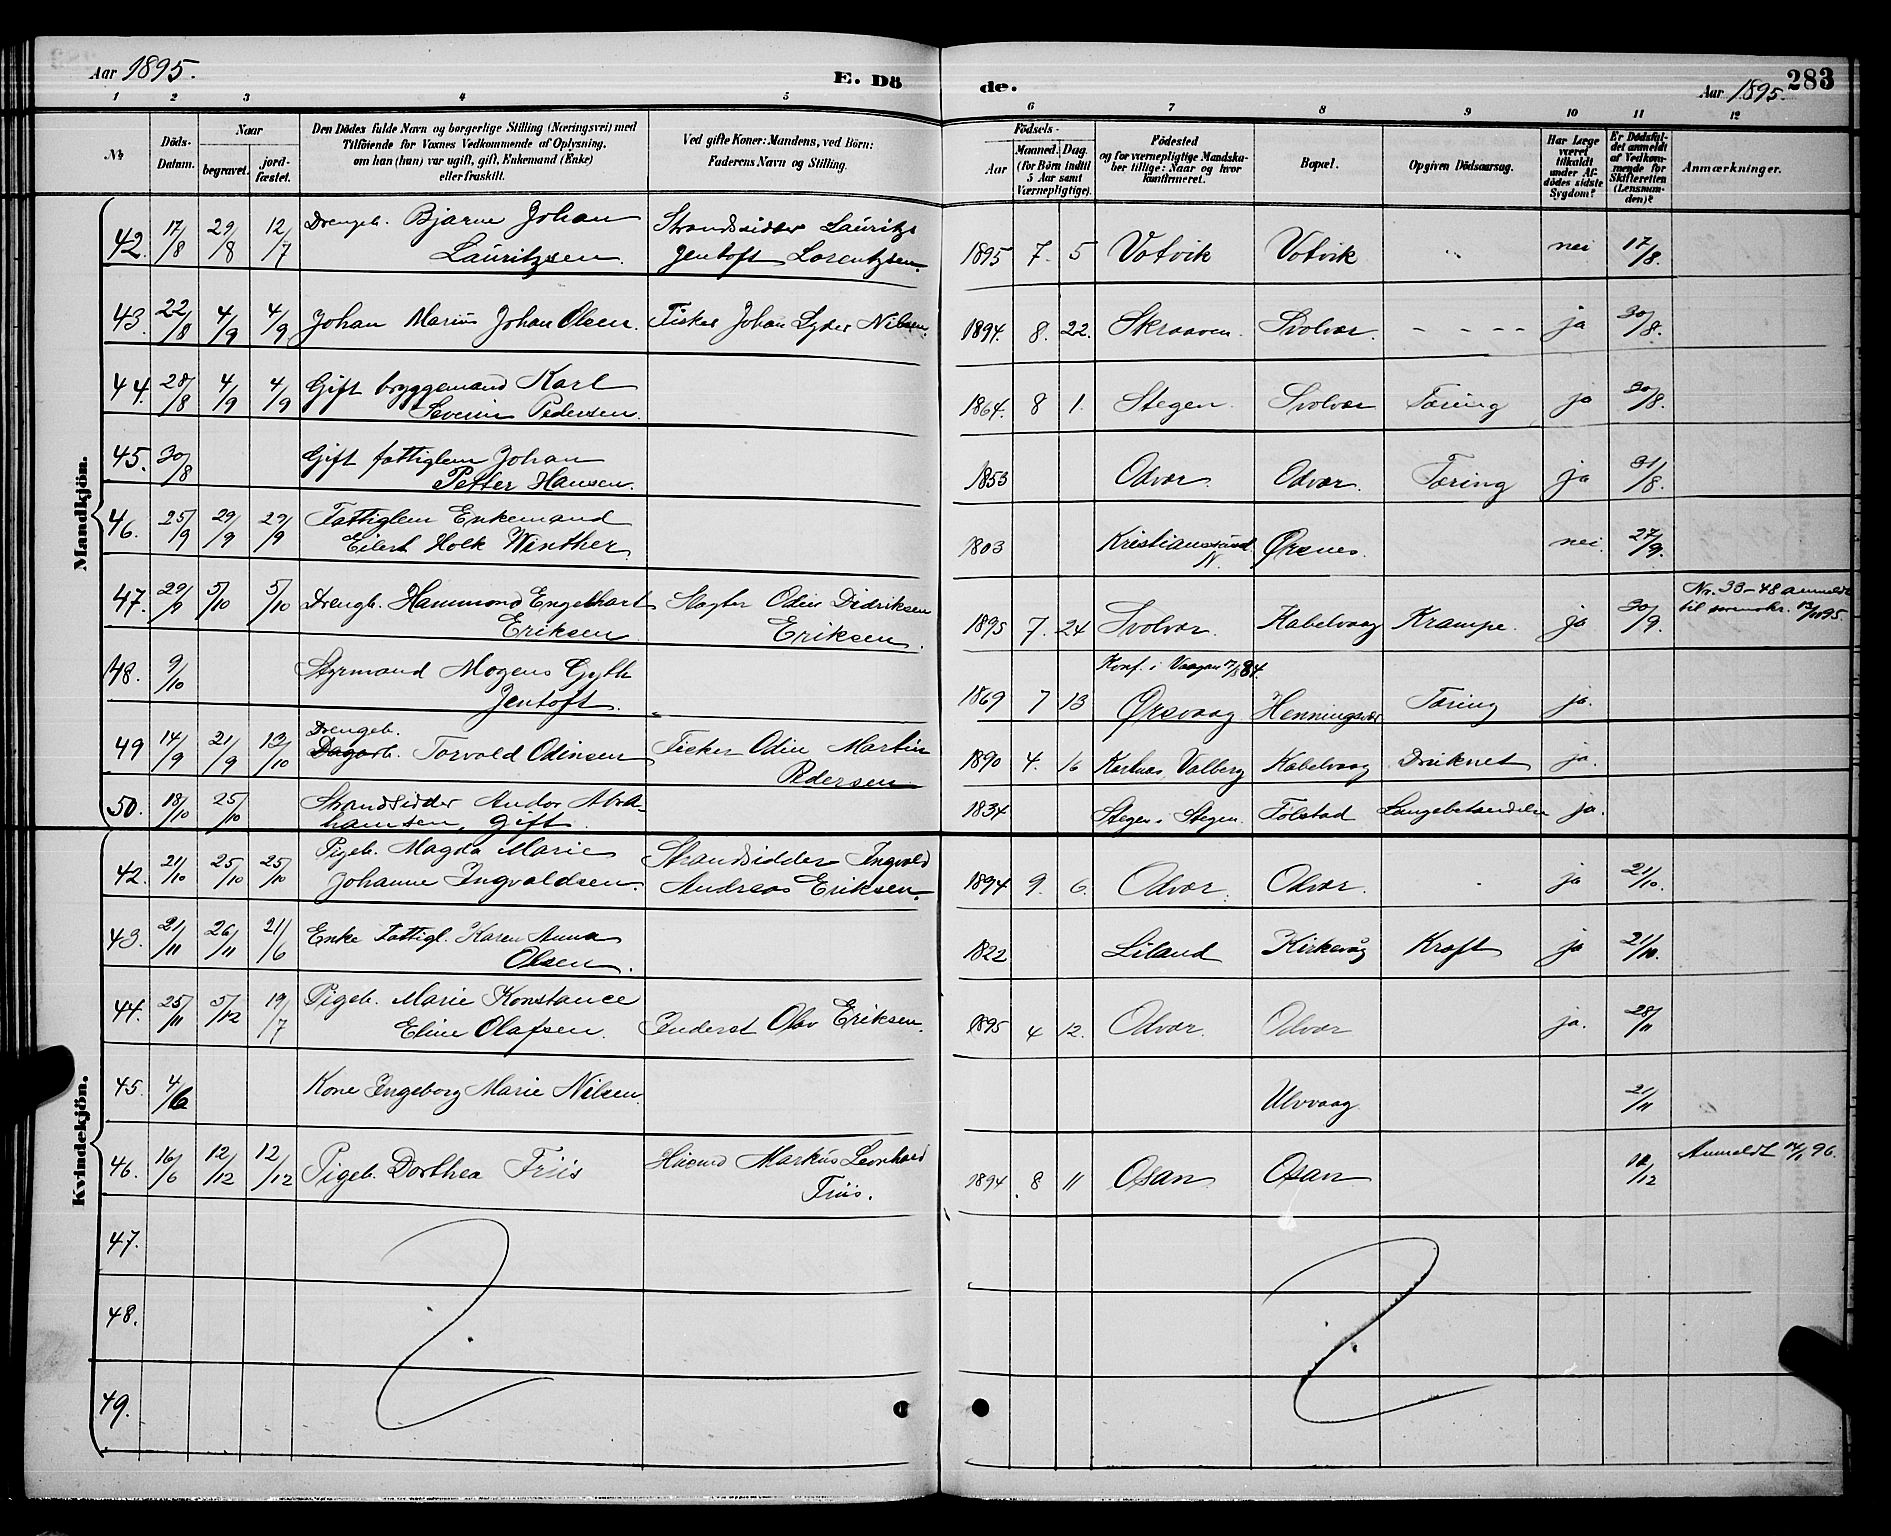 Aar 1895. E. Dö de. Aar 1895. 283
1 2 3 4 5 6 7 8 9 10 11 12
Nr. Döds-Datum. Naar begravet. jordfæstet. Den Dödes fulde Navn og borgerlige Stilling (Næringsvei) med Tilföiende for Voxnes Vedkommende af Oplysning, om han (hun) var ugift, gift, Enkemand (Enke) eller fraskilt. Ved gifte Koner: Mandens, ved Börn: Faderens Navn og Stilling. Födsels- Aar Maaned. Dag. (for Börn indtil 5 Aar samt Værnepligtige). Födested og for værnepligtige Mandskaber tillige: Naar og hvor konfirmeret. Bopæl. Opgiven Dödsaarsag. Har Læge været tilkaldt under Afdödes sidste Sygdom? Er Dödsfaldet anmeldt af Vedkommende for Skifteretten (Lensmanden)? Anmærkninger.
Mandkjön.
42. 17/8 29/8 12/7 Drengeb. Bjarne Johan Lauritzsen. Strandsidder Lauritz Jentoft Lorentzsen. 1895 7. 5 Votvik Votvik nei 17/8.
43. 22/8 4/9 4/9 Johan Marius Johan Olsen. Fisker Johan Lyder Nilsen. 1894. 8. 22. Skraaven. Svolvær. - - - - ja 30/8.
44. 28/8 4/9 4/9 Gift bryggemand Karl Severin Pedersen. 1864. 8 1. Stegen. Svolvær Tæring ja 30/8.
45. 30/8 Gift fattiglem Johan Petter Hansen. 1853 Odvær. Odvær. Tæring ja 31/8.
46. 25/9 29/9 29/9 Fattiglem Enkemand Eilert Holk Winther. 1803 Kristianssund N. Ørsnes. nei. 27/9.
47. 29/9 5/10 5/10 Drengb. Hammond Engelhart Eriksen. Slagter Odin Didriksen Eriksen. 1895 7. 24 Svolvær. Kabelvaag Krampe. ja 30/9. Nr. 33-48 anmeldt til
48. 9/10 Styrmand Mogens Gyth Jentoft. 1869 7 13 Konf. i Vaagan Ørsvaag Henningsvær Tæring ja.
49 14/9 21/9 13/10 Drengeb. Torvald Odinsen Fisker Odin Martin Pedersen 1890 4. 16 Valberg Kabelvaag Druknet ja.
50. 18/10 25/10 Strandsidder Andor Abrahamsen, gift. 1834 Stegen i Stegen. Følstad Lungebetændelse ja.
Kvindekjön.
42. 21/10 25/10 25/10 Pigeb. Magda Marie Johanne Ingvaldsen. Strandsidder Ingvald Andreas Eriksen. 1894 9. 6. Odvær. Odvær. ja 21/10.
43. 21/11 26/11 21/6 Enke Fattigl. Karen Anna Olsen. 1822 Liland Kirkevåg Kræft ja 21/10.
44. 25/11 5/12 19/7 Pigeb. Marie Konstance Eline Olafsen. Inderst Olav Eriksen. 1895 4 12. Odvær. Odvær ja. 28/11
45. 4/6 Kone Ingeborg Marie Nilsen. Ulvvaag 21/11
46. 16/6 12/12 12/12 Pigeb. Dorthea Friis Husmd Markus Leonhard Friis. 1894. 8 11 Osan Osan 12/12 Anmeldt 96.
47.
48.
49.